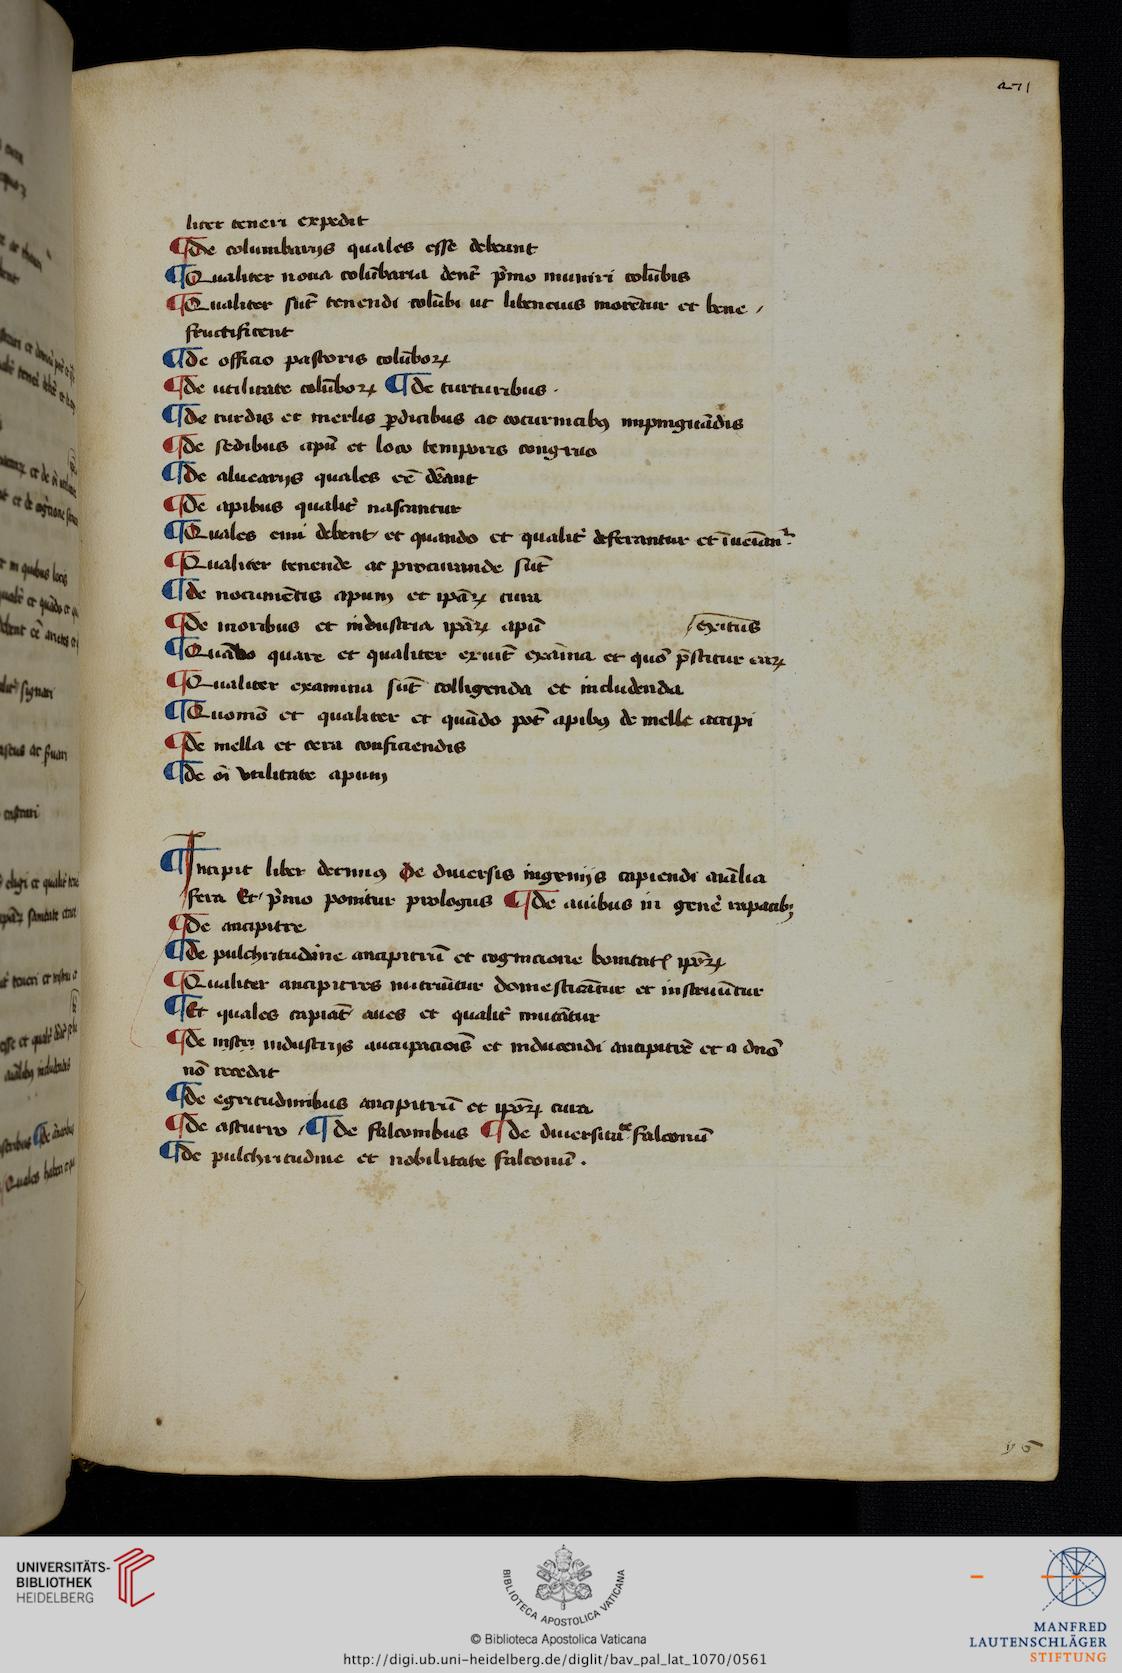 271
liter teneri expedit
¶ De columbarijs quales esse debeant
¶ Qualiter noua colūbaria dent᷑ p̄mo muniri colūbis
¶ Qualiter sūt tenendi colūbi ut libencius morēt᷑ur et bene
fructificent
¶ de officio pastoris colūboꝝ
¶ de utilitate colūboꝝ ¶ de turturibus ·
¶ de turdis et merlis ꝑdicibus ac cocurnicibꝰ inpinguādis
¶ de sedibus apū et loco temporis congruo
¶ de aluearijs quales eē dēant
¶ de apibus qualit᷑ nascantur
¶ Quales emi debent et quando et qualit᷑ deferantur et
¶ Qualiter tenende ac procurande sūt
¶ de nocumētis apum et ip̄aꝝ cura
¶ de moribus et industria ip̄aꝝ apū
exitus
¶ Quādo quare et qualiter exeūt exāina et quō p̄scitur eaꝝ
¶ Qualiter examina sūt colligenda et includenda
¶ Quomō et qualiter et quādo pōt apibꝰ de melle accipi
¶ de mella et cera conficiendis
¶ de oī vtilitate apum
¶ Incipit liber decimus De diuersis ingenijs capiendi aīalia
fera Et p̄mo ponitur prologus ¶ De auibus in gene᷑ rapacibꝫ
¶ De ancipitre
¶ de pulchritudine ancipitrū et cognicione bonitatꝭ ip̄oꝝ
¶ Qualiter ancipitres nutriūtur domesticātur et instruūtur
¶ Et quales capiāt aues et qualit᷑ mutātur
¶ de industrijs aucupacōis et inducendi ancipitrē et a dnō
nō recedat
¶ de egritudinibus ancipitrū et ip̄oꝝ cura
¶ de asturro ¶ de falconibus ¶ de diuersitate falconū
¶ de pulchritudine et nobilitate falconū .
UNIVERSITÄTS-
BIBLIOTHEK
HEIDELBERG
BIBLIOTECA APOSTOLICA VATICANA
© Biblioteca Apostolica Vaticana
http://digi.ub.uni-heidelberg.de/diglit/bav_pal_lat_1070/0561
MANFRED
LAUTENSCHLÄGER
STIFTUNG